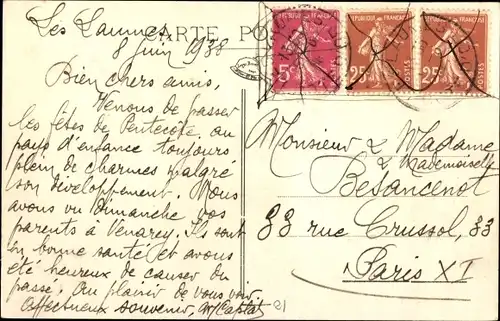 Les Laumes
8 juin 1938
CARTE POS
REPUBLIQUE FRANÇAISE
5c
POSTES
REPUBLIQUE FRANÇAISE
25c
POSTES
REPUBLIQUE FRANÇAISE
25c
POSTES
Bien chers amis,
Venons de passer
les fêtes de Pentecôte au
pays d'enfance toujours
plein de charmes malgré
son développement. Nous
avons vu Dimanche vos
parents à Venarey. Ils sont
en bonne santé et avons
été heureux de causer du
passé. Au plaisir de vous voir
affectueux souvenir,
Monsieur & Madame
& Mademoiselle
Besancenot
33 rue Crussol, 33
Paris XI
21